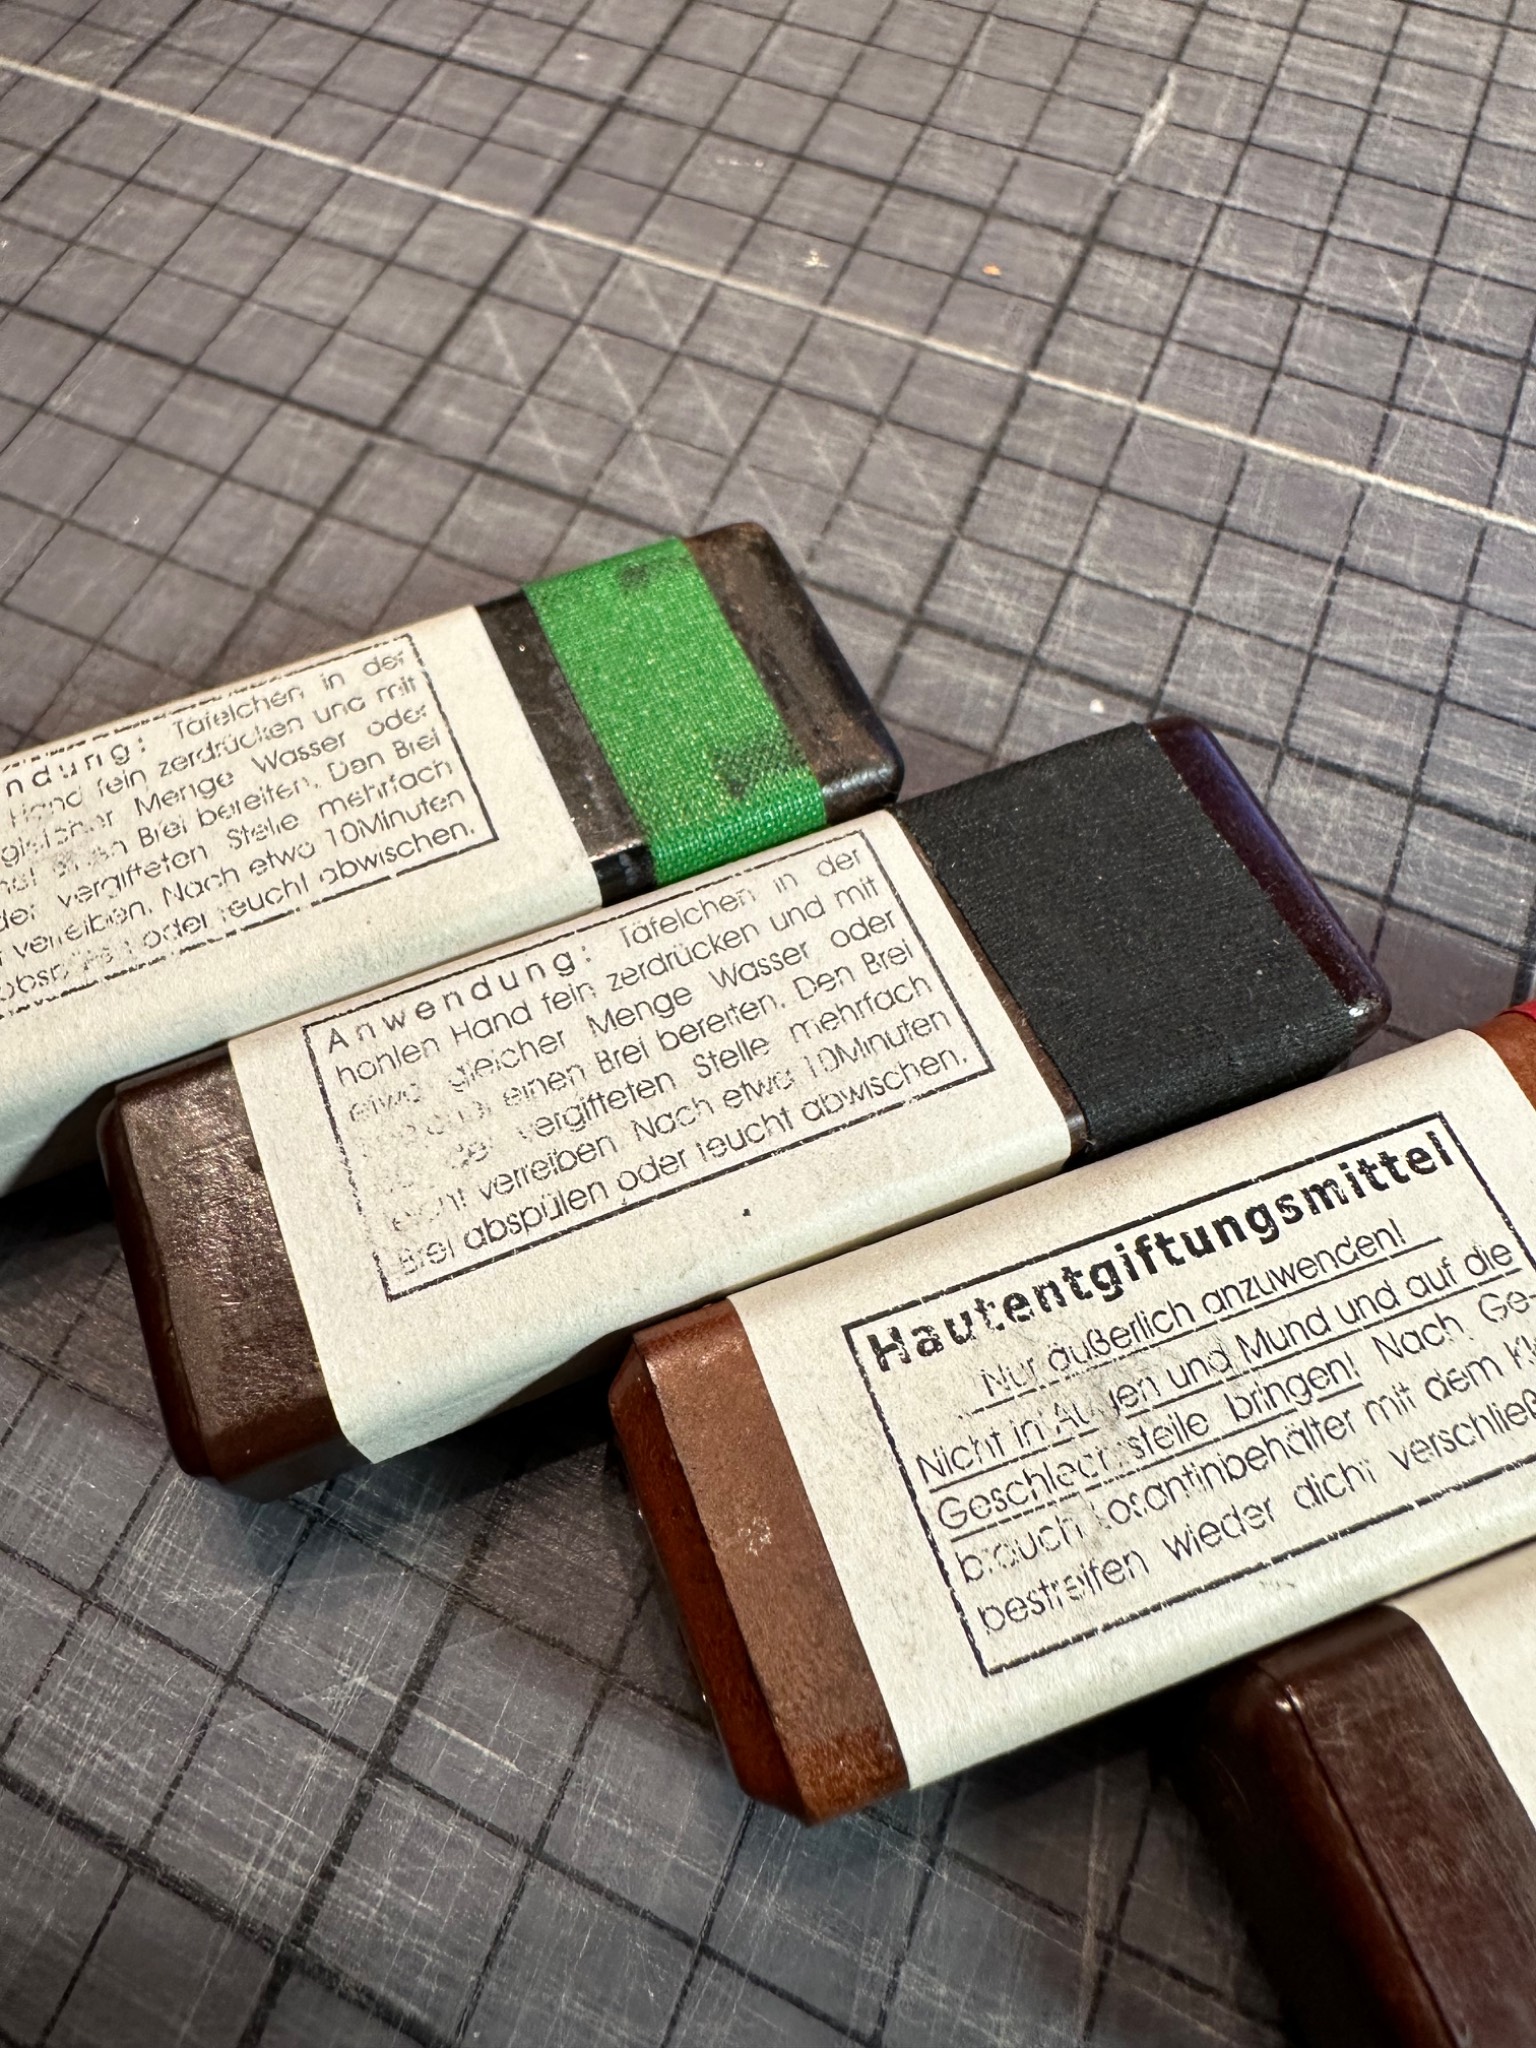 ndung: Täfelchen in der
Hand fein zerdrücken und mit
gleicher Menge Wasser oder
einen Brei bereiten. Den Brei
der vergifteten Stelle mehrfach
verreiben. Nach etwa 10Minuten
oder feucht abwischen.
Anwendung: Täfelchen in der
hohlen Hand fein zerdrücken und mit
etwa gleicher Menge Wasser oder
einen Brei bereiten. Den Brei
der vergifteten Stelle mehrfach
leicht verreiben Nach etwa 10Minuten
Brei abspülen oder feucht abwischen.
Hautentgiftungsmittel
Nur äußerlich anzuwenden!
Nicht in Augen und Mund und auf die
Geschlechtsteile bringen! Nach Ge-
brauch Losantinbehälter mit dem Kl
bestreifen wieder dicht verschließ